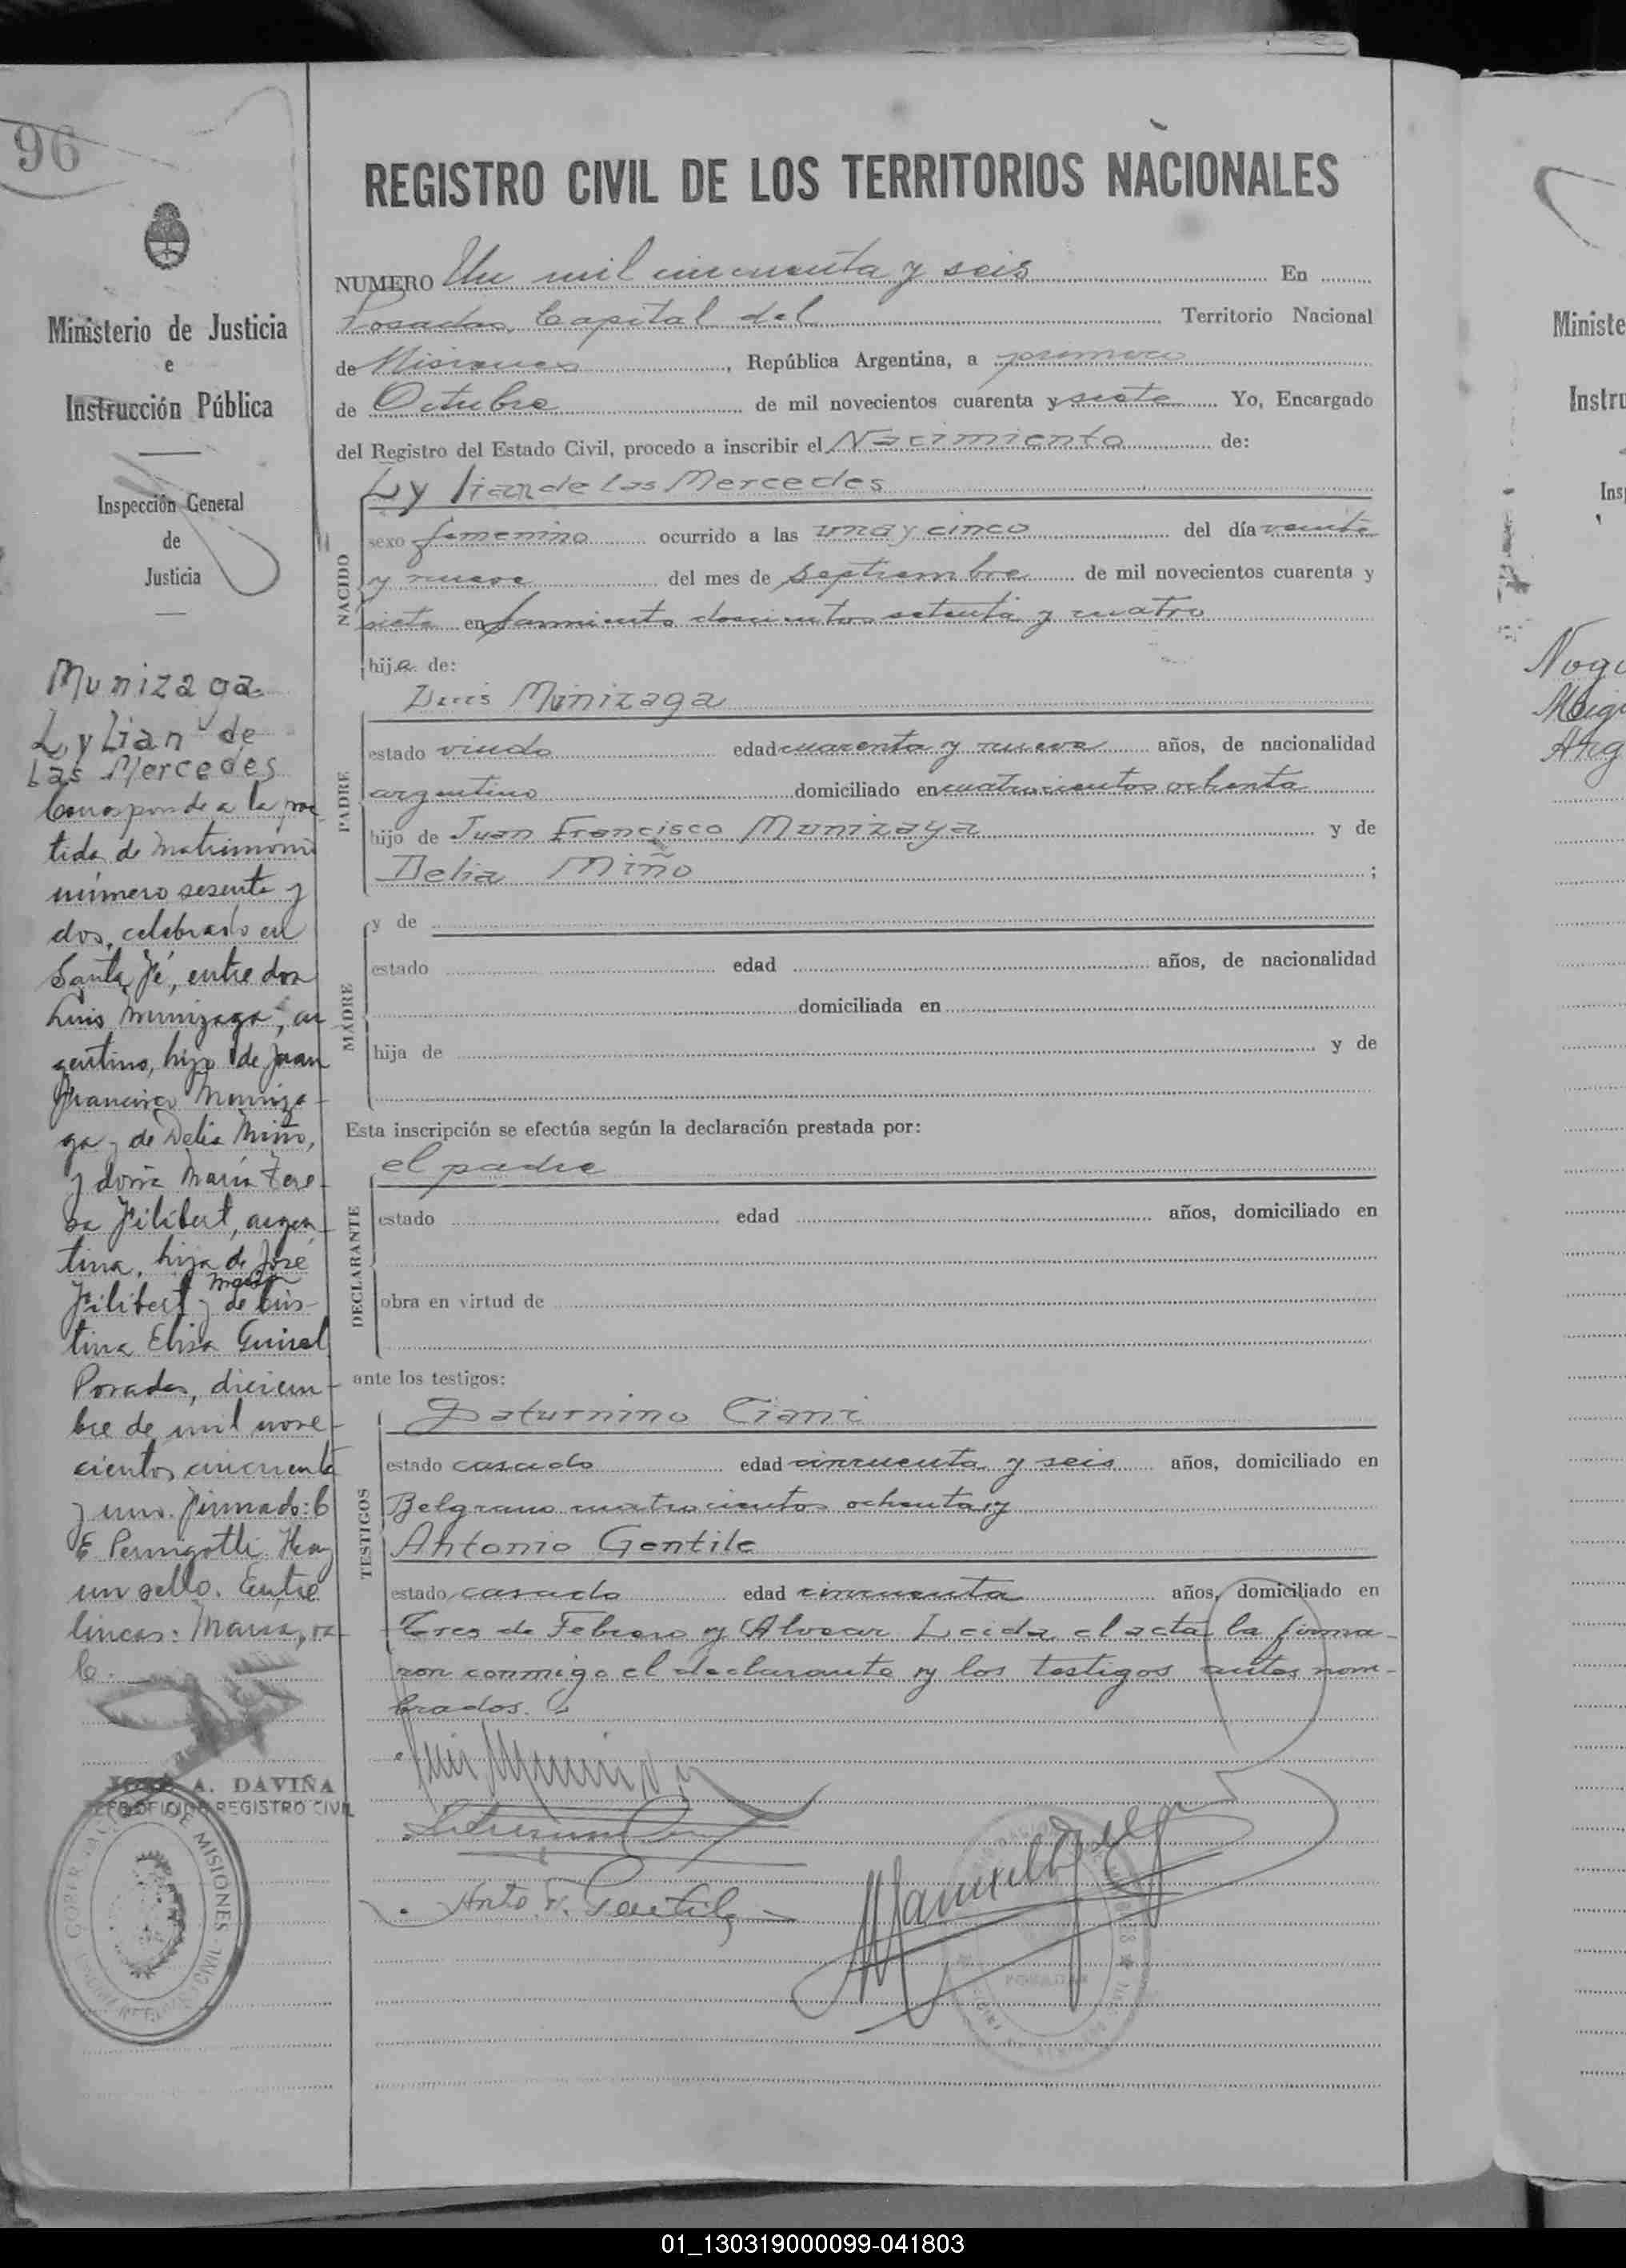 96
Ministerio de Justicia
e
Instrucción Pública
Inspección General
de
Justicia
Munizaga
Lylian de
las Mercedes
Corresponde a la par
tida de Matrimonio
número sesenta y
dos, celebrado en
Santa Fé, entre don
Luis Munizaga, ar
gentino, hijo de Juan
Francisco Muniza-
ga y de Delia Miño,
y doña María Tere-
sa Filibert, argen-
tina, hija de José
María
Filibert y de Cris-
tina Elisa Guirel
Posadas, diciem-
bre de mil nove-
cientos cincuenta
y uno. Firmado: C
E Pernigotti. Hay
un sello. Entre
lineas: María, va-
le.
JOSE A. DAVIÑA
JEFE OFICINA REGISTRO CIVIL
REGISTRO CIVIL DE LOS TERRITORIOS NACIONALES
NUMERO Un mil cincuenta y seis En
Posadas, Capital del Territorio Nacional
de Misiones, República Argentina, a primero
de Octubre de mil novecientos cuarenta y siete Yo, Encargado
del Registro del Estado Civil, procedo a inscribir el Nacimiento de:
NACIDO
Lylian de las Mercedes
sexo femenino ocurrido a las una y cinco del día veinte
y nueve del mes de septiembre de mil novecientos cuarenta y
siete en Sarmiento doscientos setenta y cuatro
hija de:
PADRE
Luis Munizaga
estado viudo edad cuarenta y nueve años, de nacionalidad
argentino domiciliado en cuatrocientos ochenta
hijo de Juan Francisco Munizaga y de
Delia Miño ;
MADRE
y de
estado edad años, de nacionalidad
domiciliada en
hija de y de
Esta inscripción se efectúa según la declaración prestada por:
DECLARANTE
el padre
estado edad años, domiciliado en
obra en virtud de
ante los testigos:
TESTIGOS
Saturnino Ciani
estado casado edad cincuenta y seis años, domiciliado en
Belgrano cuatrocientos ochenta y
Antonio Gentile
estado casado edad cincuenta años, domiciliado en
Tres de Febrero y Alvear Leida el acta la firma-
ron conmigo el declarante y los testigos antes nom-
brados.
Luis Munizaga
Anto. F. Gentile
MISIONES
POSADAS
Ministe
Instru
Ins
01_130319000099-041803